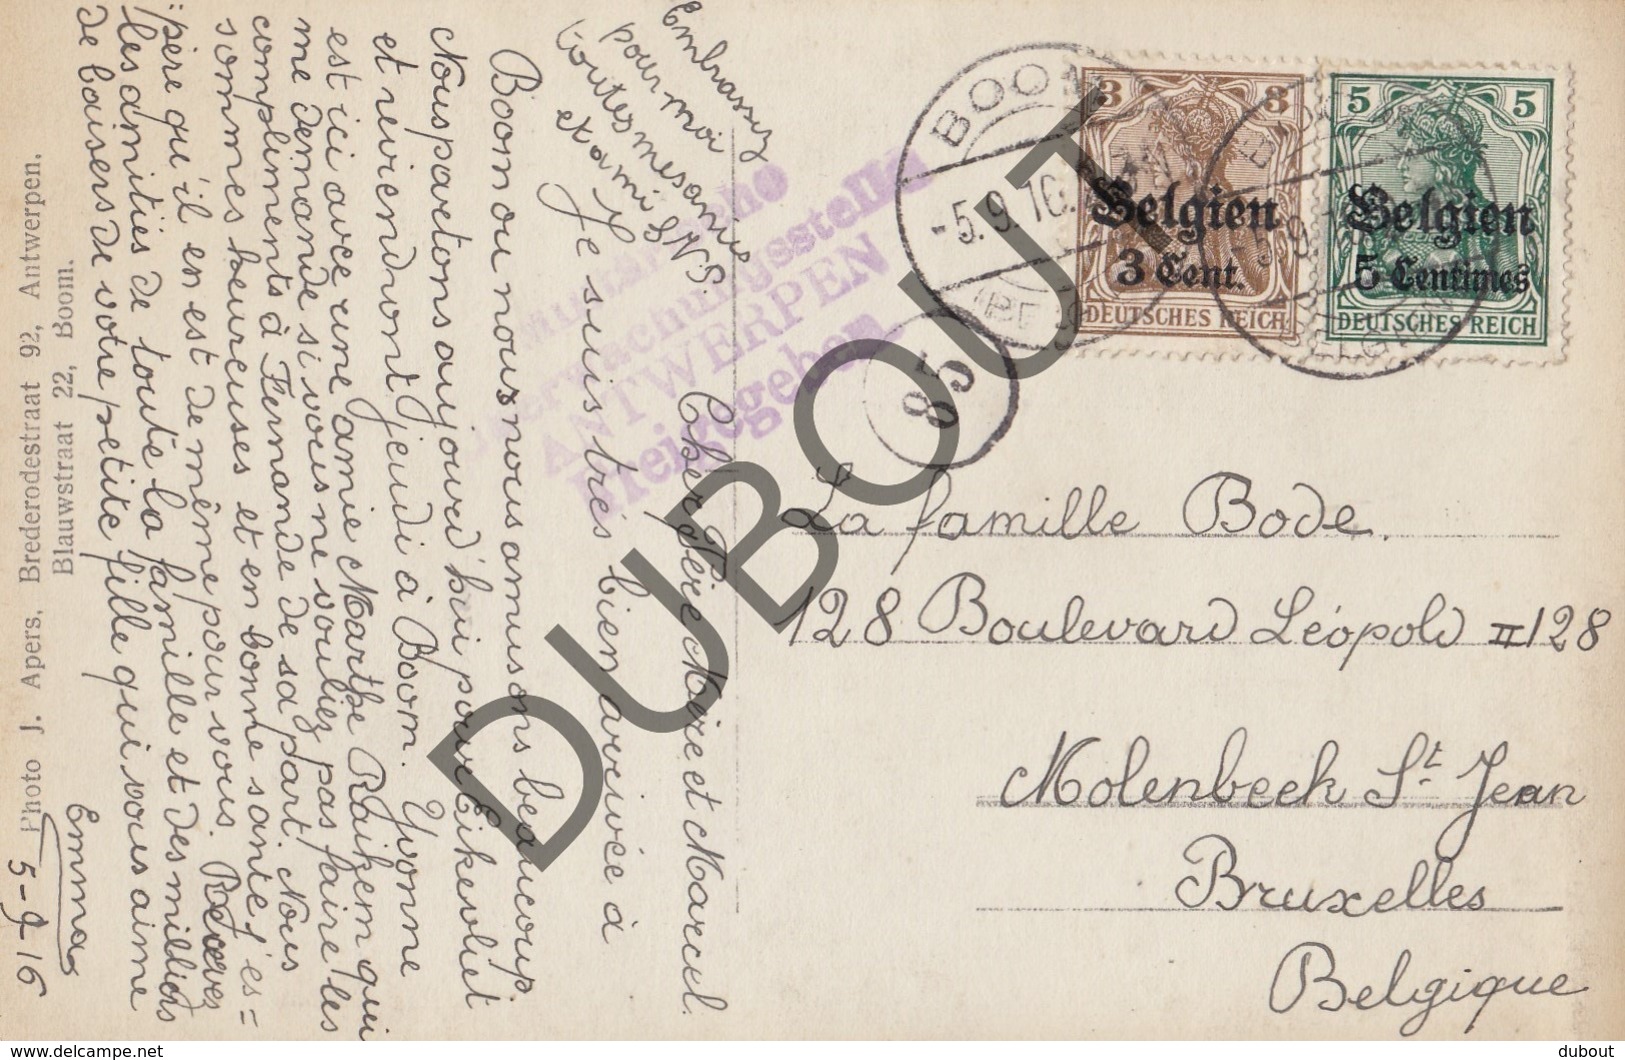 Cher Père Mère et Marcel.
Je suis très bien arrivée à
Boom ou nous nous amusons beaucoup.
Nous partons aujourd'hui pour Eikevliet
et reviendront jeudi à Boom. Yvonne
est ici avec une amie Marthe qui
me demande si vous ne vouliez pas faire les
compliments à Fernande de sa part. Nous
sommes heureuses et en bonne santé, j'es=
père qu'il en est de même pour vous. Recevez
les amitiés de toute la famille et des millions
de baisers de votre petite fille qui vous aime
Emma
5-9-16
Embrassez
pour moi
toutes mes amies
et ami
Photo J. Apers, Brederodestraat 92, Antwerpen.
Blauwstraat 22, Boom.
Überwachungsstelle
ANTWERPEN
Freigegeben
BOOM
-5.9.16.
85
3 3
Belgien
3 Cent.
DEUTSCHES REICH
5 5
Belgien
5 Centimes
DEUTSCHES REICH
La famille Bode.
128 Boulevard Léopold II 128
Molenbeek St Jean
Bruxelles
Belgique
DUBOUT
dubout